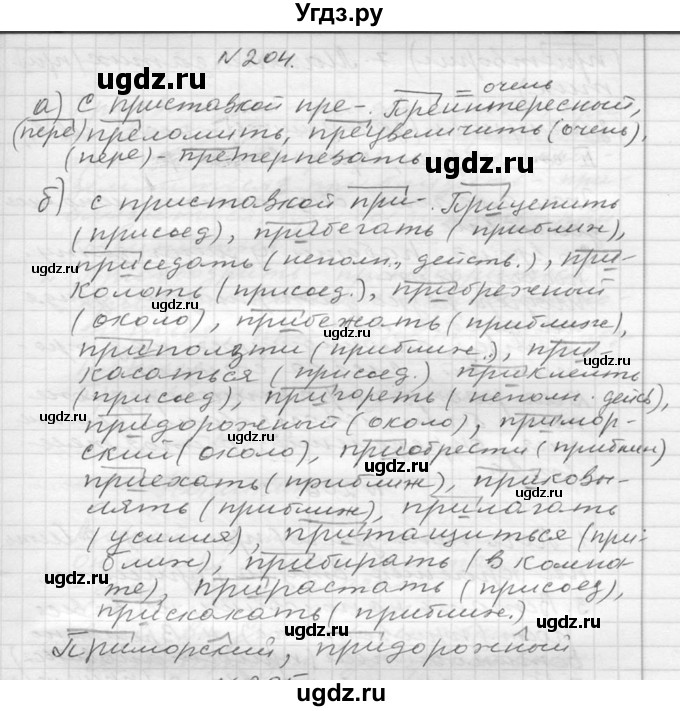 Угдз.ру
N 204.
= очень
а) С приставкой пре-. Преинтересный,
(пере) преломить, преувеличить (очень),
(пере) - претерпевать
б) с приставкой при-. Прицепить
(присоед), прибегать (приближ),
приседать (неполн., действ.), при-
колоть (присоед.), прибрежный
(около), прибежать (приближ),
приползти (приближ.), при-
касаться (присоед.) приклеить
(присоед), пригореть (неполн. дейсв),
придорожный (около), примор-
ский (около), приобрести (приближ)
приехать (приближ), приковы-
лять (приближ), прилагать
(усилия), притащиться (при-
ближ), прибирать (в комна-
те), прирастать (присоед),
прискакать (приближ.)
Приморский, придорожный
ugdz.ru
ugdz.ru
ugdz.ru
ugdz.ru
ugdz.ru
ugdz.ru
ugdz.ru
ugdz.ru
ugdz.ru
ugdz.ru
ugdz.ru
ugdz.ru
ugdz.ru
ugdz.ru